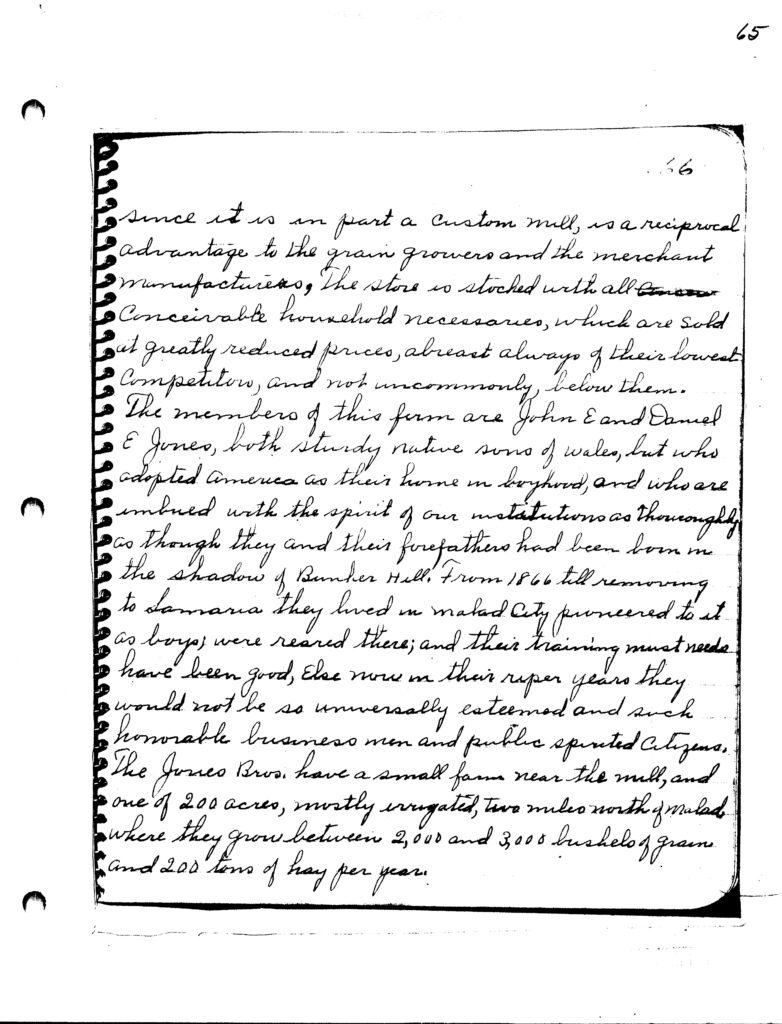 65
66
since it is in part a custom mill, is a reciprocal
advantage to the grain growers and the merchant
manufacturers, The store is stocked with all
Conceivable household necessaries, which are sold
at greatly reduced prices, abreast always of their lowest
Competitors, and not uncommonly, below them.
The members of this firm are John E and Daniel
E Jones, both sturdy native sons of Wales, but who
adopted America as their home in boyhood, and who are
imbued with the spirit of our institutions as thouroughly
as though they and their forefathers had been born in
the shadow of Bunker Hill. From 1866 till removing
to Samaria they lived in Malad City pioneered to it
as boys; were reared there; and their training must needs
have been good, Else now in their riper years they
would not be so universally esteemed and such
honorable business men and public spirited Citizens.
The Jones Bros. have a small farm near the mill, and
one of 200 acres, mostly irrugated, two miles north of Malad
where they grow between 2,000 and 3,000 bushels of grain
and 200 tons of hay per year.